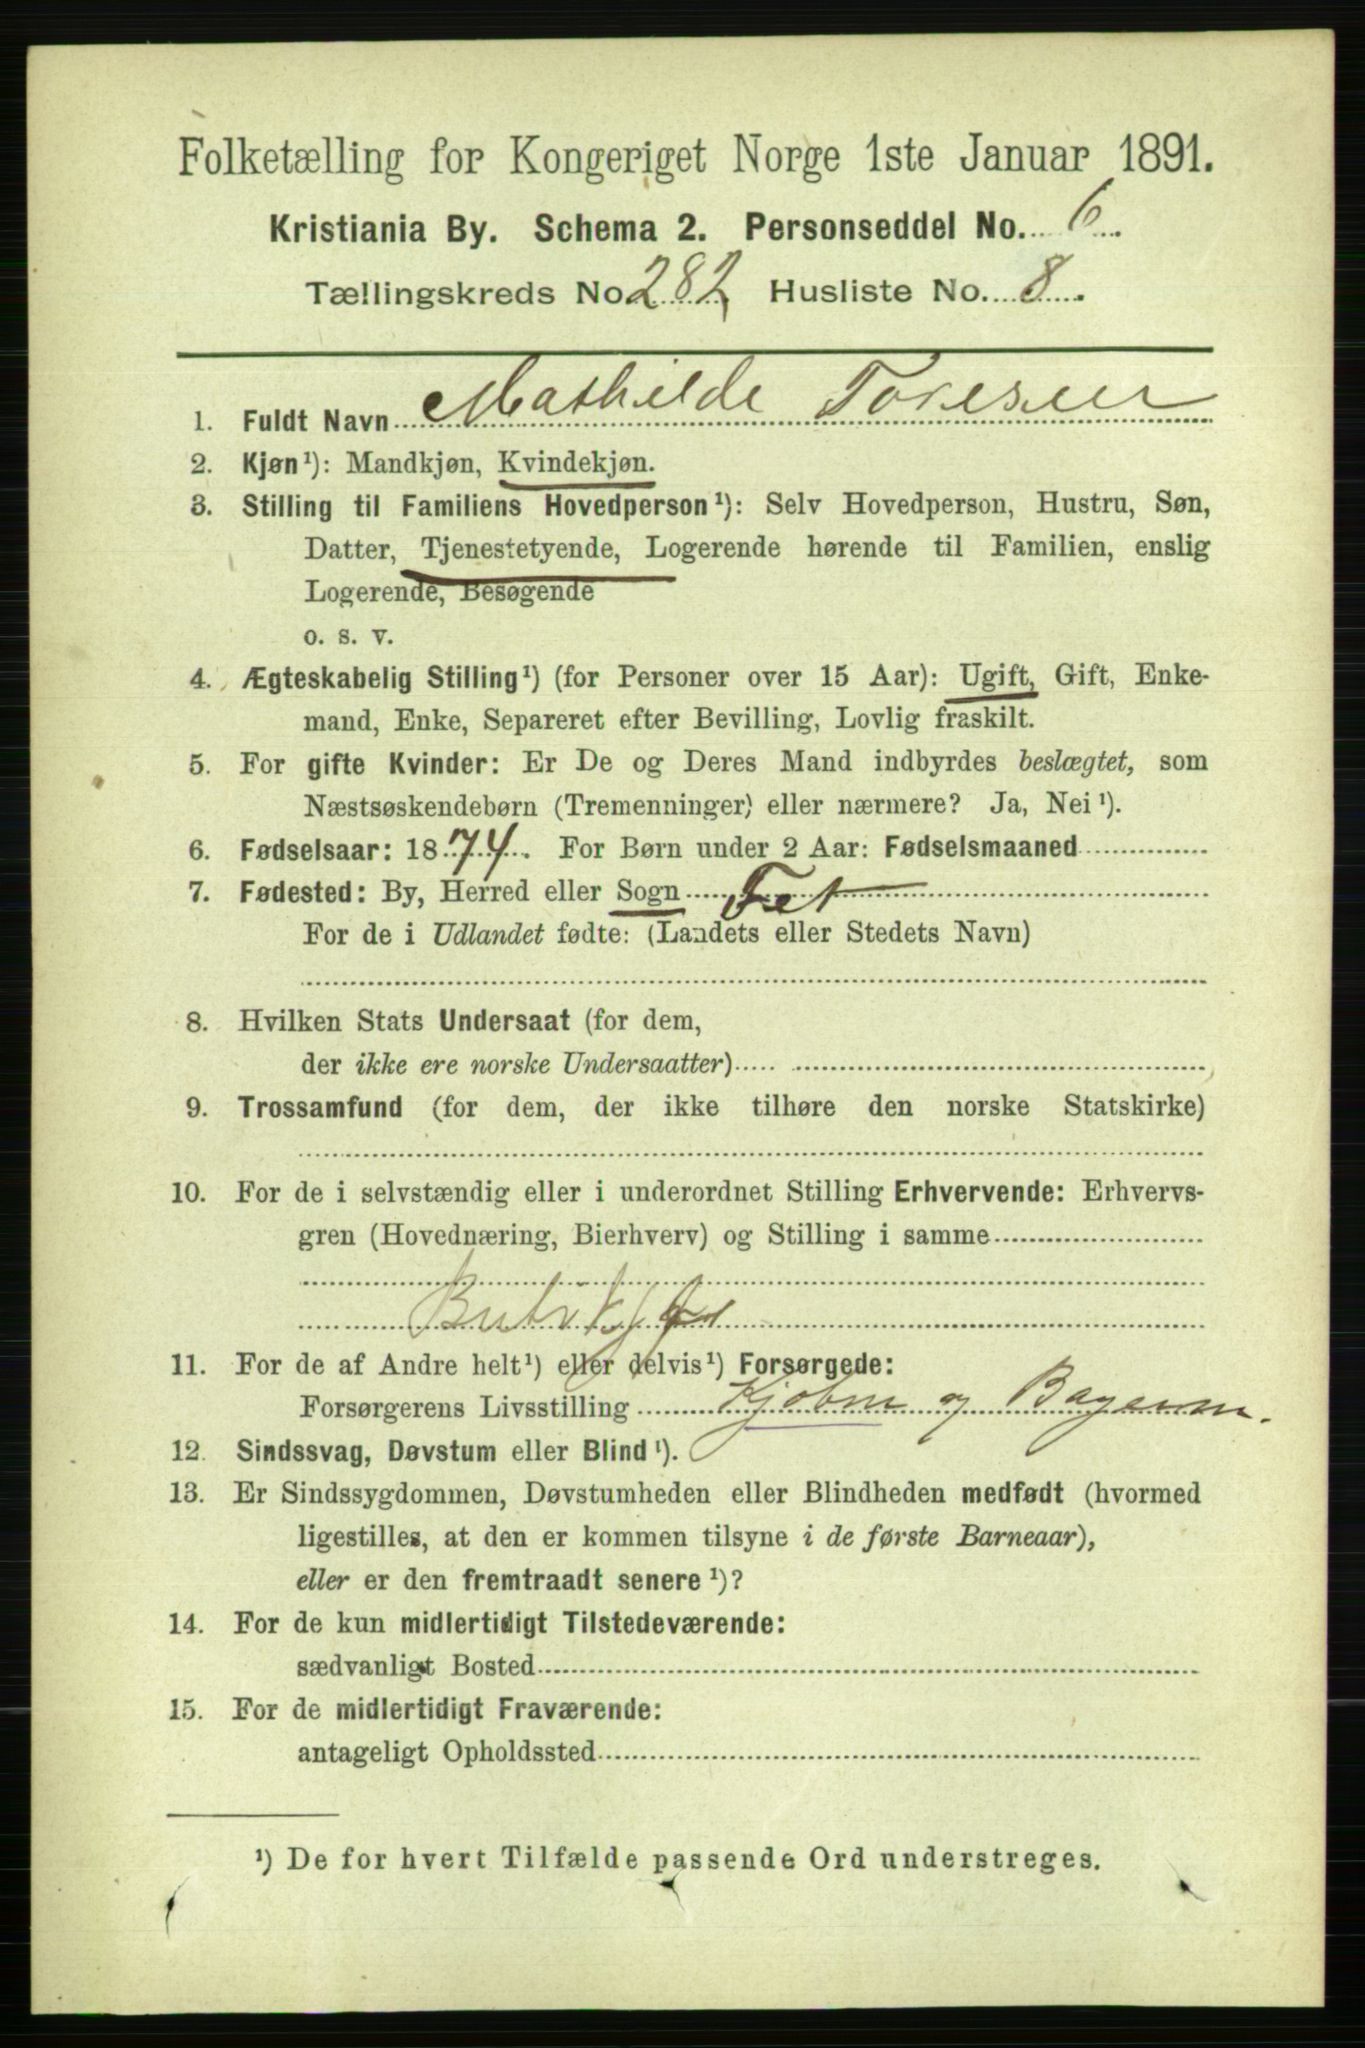 Folketælling for Kongeriget Norge 1ste Januar 1891.
Kristiania By. Schema 2. Personseddel No. 6
Tællingskreds No 282 Husliste No. 8
1. Fuldt Navn Mathilde Toresen
2. Kjøn¹): Mandkjøn, Kvindekjøn.
3. Stilling til Familiens Hovedperson¹): Selv Hovedperson, Hustru, Søn,
Datter, Tjenestetyende, Logerende hørende til Familien, enslig
Logerende, Besøgende
o. s. v.
4. Ægteskabelig Stilling¹) (for Personer over 15 Aar): Ugift, Gift, Enke-
mand, Enke, Separeret efter Bevilling, Lovlig fraskilt.
5. For gifte Kvinder: Er De og Deres Mand indbyrdes beslægtet, som
Næstsøskendebørn (Tremenninger) eller nærmere? Ja, Nei¹).
6. Fødselsaar: 1874. For Børn under 2 Aar: Fødselsmaaned
7. Fødested: By, Herred eller Sogn Fet
For de i Udlandet fødte: (Landets eller Stedets Navn)
8. Hvilken Stats Undersaat (for dem,
der ikke ere norske Undersaatter)
9. Trossamfund (for dem, der ikke tilhøre den norske Statskirke)
10. For de i selvstændig eller i underordnet Stilling Erhvervende: Erhvervs-
gren (Hovednæring, Bierhverv) og Stilling i samme
11. For de af Andre helt¹) eller delvis¹) Forsørgede:
Forsørgerens Livsstilling og
12. Sindssvag, Døvstum eller Blind¹).
13. Er Sindssygdommen, Døvstumheden eller Blindheden medfødt (hvormed
ligestilles, at den er kommen tilsyne i de første Barneaar),
eller er den fremtraadt senere¹)?
14. For de kun midlertidigt Tilstedeværende:
sædvanligt Bosted
15. For de midlertidigt Fraværende:
antageligt Opholdssted
¹) De for hvert Tilfælde passende Ord understreges.